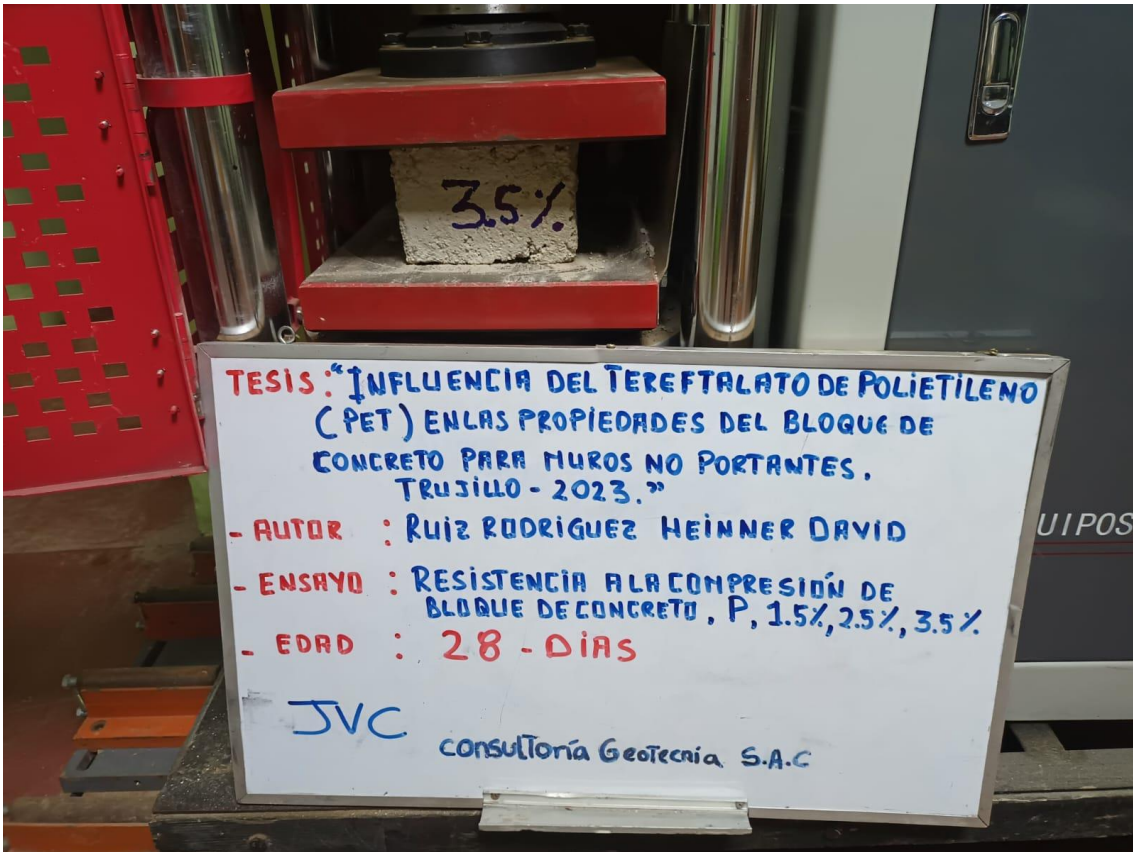 3.5%
TESIS: "INFLUENCIA DEL TEREFTALATO DE POLIETILENO
(PET) EN LAS PROPIEDADES DEL BLOQUE DE
CONCRETO PARA MUROS NO PORTANTES.
TRUJILLO - 2023."
- AUTOR : RUIZ RODRIGUEZ HEINNER DAVID
- ENSAYO : RESISTENCIA A LA COMPRESIÓN DE
BLOQUE DE CONCRETO, P, 1.5%, 2.5%, 3.5%.
- EDAD : 28 - DÍAS
JVC
consultoría Geotecnia S.A.C
UIPOS